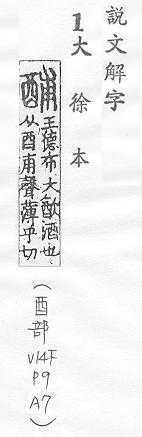 説文解字
1大徐本
酺王德布大㱃酒也
从酉甫聲薄乎切
(酉部V14下P9A7)